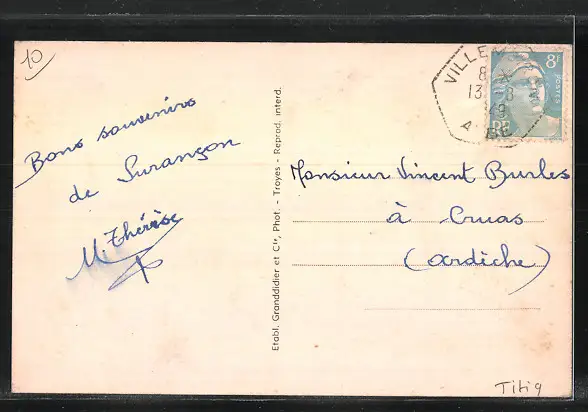 10
Bons souvenirs
de Surançon
M. Thérèse
Etabl. Granddidier et Cie, Phot. - Troyes - Reprod. interd.
8F
POSTES
RF
VILLE
8
13 - 8
49
AUBE
Monsieur Vincent Burles
à Cruas
(Ardèche)
Titi9